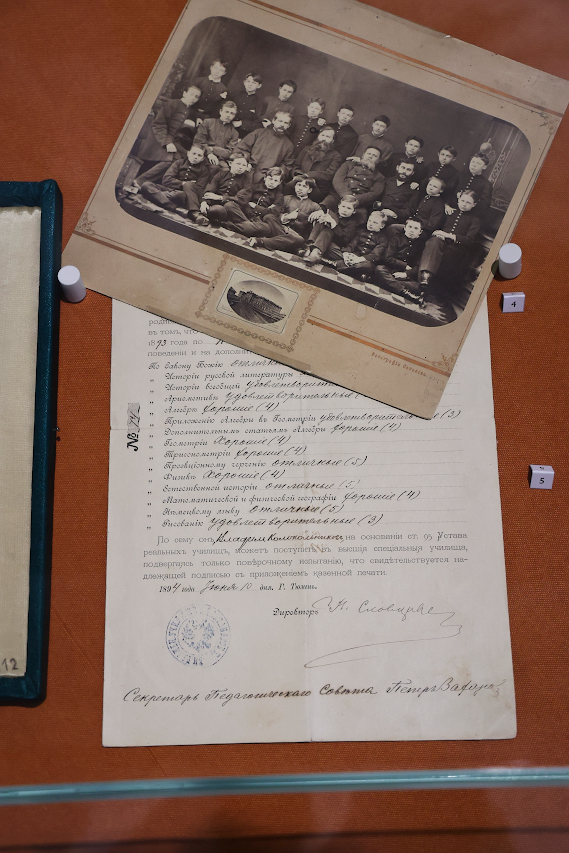 въ томъ, что
1893 года по
поведеніи и на дополн
По Закону Божію отличн
„ Исторіи русской литературы
„ Исторіи всеобщей удовлетворительн
„ Ариѳметикѣ удовлетворительные
„ Алгебрѣ хорошіе (4)
„ Приложенію Алгебры къ Геометріи удовлетворительные (3)
„ Дополнительнымъ статьямъ Алгебры хорошіе (4)
„ Геометріи хорошіе (4)
„ Тригонометріи хорошіе (4)
„ Проекціонному черченію отличные (5)
„ Физикѣ хорошіе (4)
„ Естественной исторіи отличные (5)
„ Математической и физической географіи хорошіе (4)
„ Нѣмецкому языку отличные (5)
„ Рисованію удовлетворительные (3)
По сему онъ, Владиміръ Колокольниковъ на основаніи ст. 95 Устава
реальныхъ училищъ, можетъ поступить въ высшія спеціальныя училища,
подвергаясь только повѣрочному испытанію, что свидѣтельствуется над-
лежащей подписью съ приложеніемъ казенной печати.
1894 года Іюня 10 дня. Г. Тюмень.
Директоръ И. Словцовъ
Секретарь Педагогическаго Совѣта Петръ
№
4
5
12